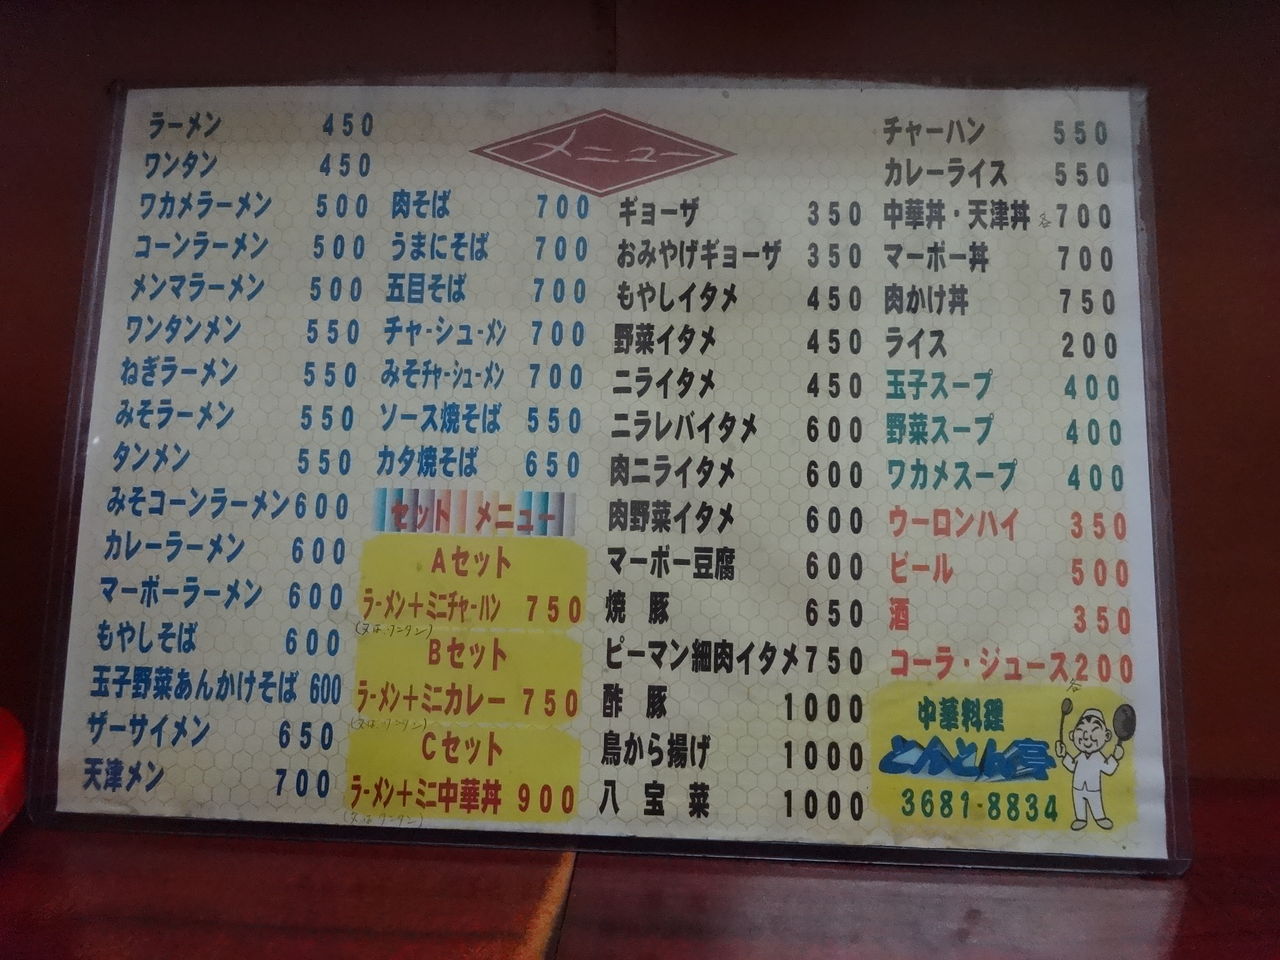 メニュー
ラーメン 450
ワンタン 450
ワカメラーメン 500
コーンラーメン 500
メンマラーメン 500
ワンタンメン 550
ねぎラーメン 550
みそラーメン 550
タンメン 550
みそコーンラーメン 600
カレーラーメン 600
マーボーラーメン 600
もやしそば 600
玉子野菜あんかけそば 600
ザーサイメン 650
天津メン 700
肉そば 700
うまにそば 700
五目そば 700
チャーシューメン 700
みそチャーシューメン 700
ソース焼そば 550
カタ焼そば 650
セット メニュー
Aセット
ラーメン+ミニチャーハン 750
(又はワンタン)
Bセット
ラーメン+ミニカレー 750
(又はワンタン)
Cセット
ラーメン+ミニ中華丼 900
(又はワンタン)
ギョーザ 350
おみやげギョーザ 350
もやしイタメ 450
野菜イタメ 450
ニライタメ 450
ニラレバイタメ 600
肉ニライタメ 600
肉野菜イタメ 600
マーボー豆腐 600
焼豚 650
ピーマン細肉イタメ 750
酢豚 1000
鳥から揚げ 1000
八宝菜 1000
チャーハン 550
カレーライス 550
中華丼・天津丼 各700
マーボー丼 700
肉かけ丼 750
ライス 200
玉子スープ 400
野菜スープ 400
ワカメスープ 400
ウーロンハイ 350
ビール 500
酒 350
コーラ・ジュース 200
各
中華料理
とんとん亭
3681-8834